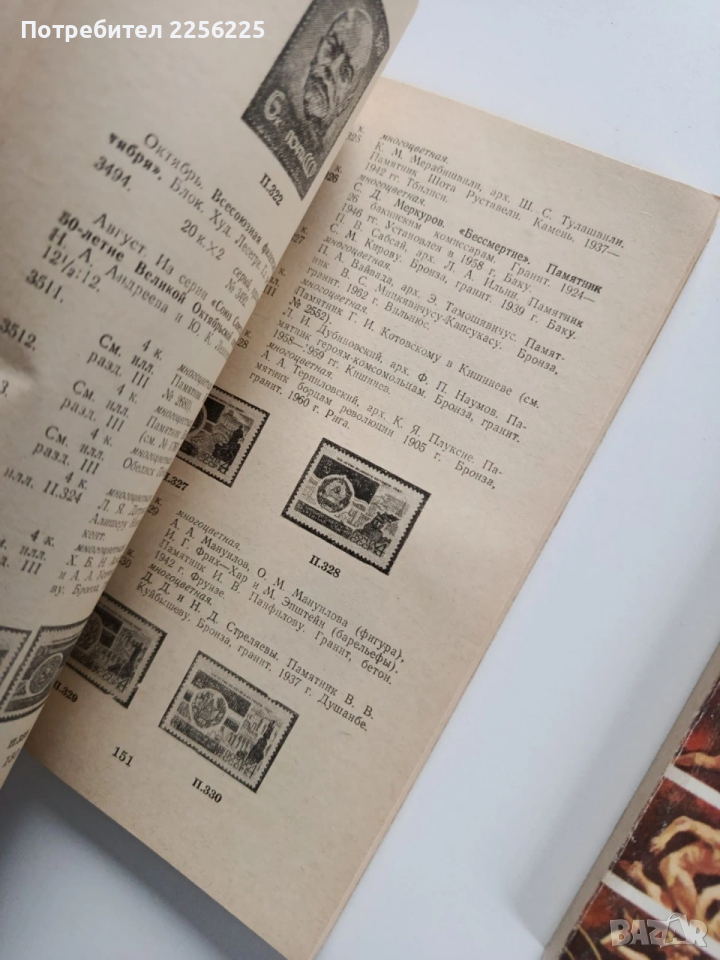 Потребител 2256225
6к ПОЧТА СССР
П.322
Октябрь. Всесоюзная
тября». Блок. Худ.
3494. 20 к.×2
Август. Из серии «Союз
50-летие Великой Октябрьской
Н. А. Андреева и Ю. К.
12½:12.
3511.
3512. 4 к.
См. илл.
разд. III
4 к.
См. илл.
разд. III
4 к.
См. илл.
разд. III
илл. П.324
4 к.
См. илл.
разд. III
325 многоцветная.
К. М. Мерабишвили, арх. Ш. С. Тулашвили.
Памятник Шота Руставели. Камень, 1937—
1942 гг. Тбилиси.
326 многоцветная.
С. Д. Меркуров. «Бессмертие». Памятник
26 бакинским комиссарам. Гранит. 1924—
1946 гг. Установлен в 1958 г. Баку.
327 П. В. Сабсай, арх. Л. А. Ильин. Памятник
С. М. Кирову. Бронза, гранит. 1939 г. Баку.
многоцветная.
П. А. Вайвада, арх. Э. Тамошявичус. Памят-
ник В. С. Мицкявичусу-Капсукасу. Бронза,
гранит. 1962 г. Вильнюс.
328 многоцветная.
Памятник Г. И. Котовскому в Кишиневе (см.
№ 2552).
Л. И. Дубиновский, арх. Ф. П. Наумов. Па-
мятник героям-комсомольцам. Бронза, гранит.
1958—1959 гг. Кишинев.
многоцветная.
А. А. Терпиловский, арх. К. Я. Плуксне. Па-
мятник борцам революции 1905 г. Бронза,
гранит. 1960 г. Рига.
П.327
П.328
многоцветная.
А. А. Мануилов, О. М. Мануилова (фигура),
И. Г. Фрих-Хар и М. Эпштейн (барельефы).
Памятник И. В. Панфилову. Гранит, бетон.
1942 г. Фрунзе.
многоцветная.
Д. Д. и Н. Д. Стреляевы. Памятник В. В.
Куйбышеву. Бронза, гранит. 1937 г. Душанбе.
П.329
П.330
151
BAZAR